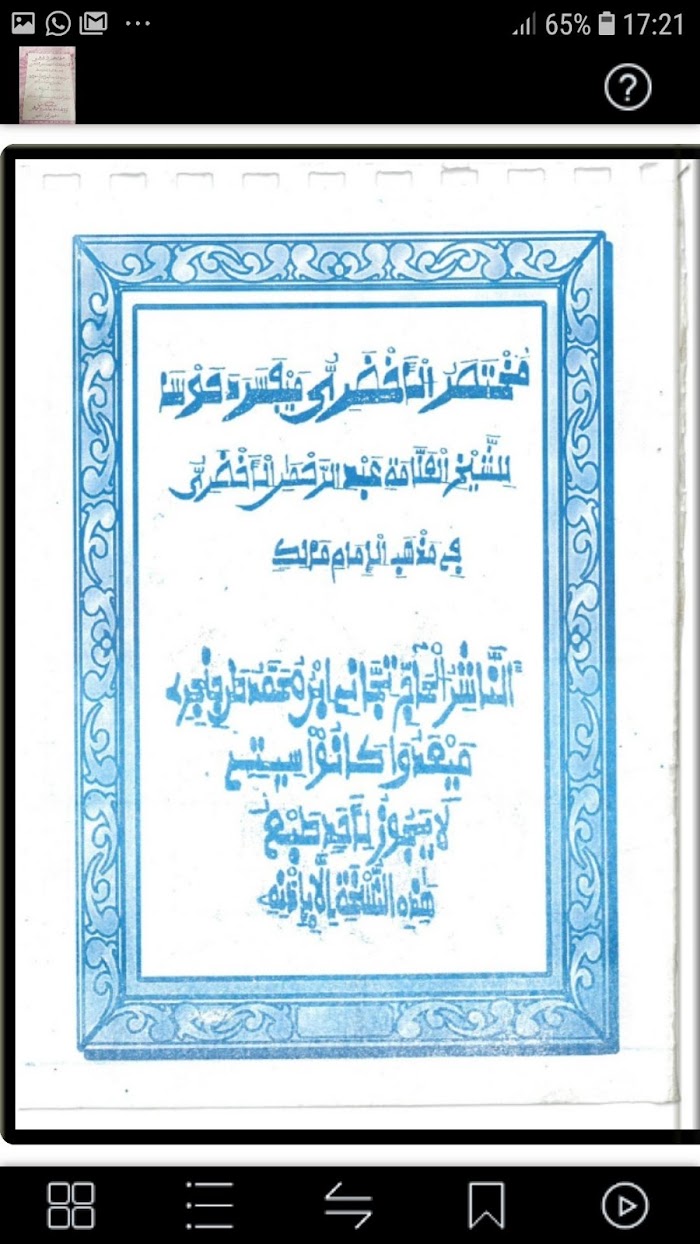 65% 17:21
مُخْتَصَرُ الْأَخْضَرِيِّ مَيْڢَسَرَ دَ هَوْسَ
لِلشَّيْخِ الْعَلَّامَةِ عَبْدِ الرَّحْمٰنِ الْأَخْضَرِيِّ
فِي مَذْهَبِ الْإِمَامِ مَالِكِ
النَّاشِرُ الْحَاجِّ تِجَانِي ابْنُ مُحَمَّدْ
كَانُوْا سِيتِي
لَا يَجُوزُ لِأَحَدٍ طَبْعُ
هٰذِهِ النُّسْخَةِ إِلَّا بِإِذْنِهِ